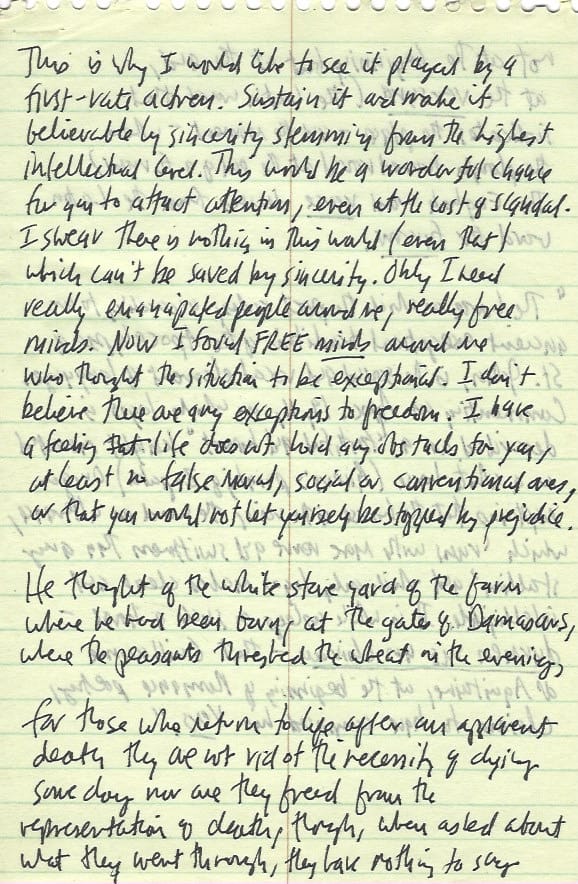 This is why I would like to see it played by a
first-rate actress. Sustain it and make it
believable by sincerity stemming from the highest
intellectual level. This would be a wonderful chance
for you to attract attention, even at the cost of scandal.
I swear there is nothing in this world (even that)
which can't be saved by sincerity. Only I need
really emancipated people around me, really free
minds. Now I found FREE minds around me
who thought the situation to be exceptional. I don't
believe there are any exceptions to freedom. I have
a feeling that life does not hold any obstacles for you,
at least no false moral, social or conventional ones,
or that you would not let yourself be stopped by prejudice.
He thought of the white stone yard of the farm
where he had been born, at the gates of Damascus,
where the peasants threshed the wheat in the evenings
for those who return to life after an apparent
death they are not rid of the necessity of dying
some day nor are they freed from the
representation of death, though, when asked about
what they went through, they have nothing to say